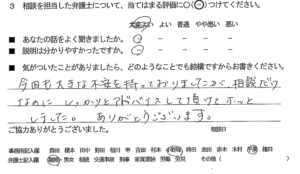 3 相談を担当した弁護士について、当てはまる評価に○(⊖)つけてください。
大変よい よい 普通 やや悪い 悪い
■ あなたの話をよく聞きましたか。
■ 説明は分かりやすかったですか。
■ 気がついたことがありましたら、どのようなことでも結構ですからお書きください。
今回も大きな不安を持っておりましたが、相談だけ
なのに しっかりとアドバイスして頂けてホッと
しました。 ありがとうございます。
ご協力ありがとうございました。
相談日
事務所記入欄
弁護士記入欄 離婚・男女 相続 交通事故 刑事 家賃滞納 労働 労災 その他(